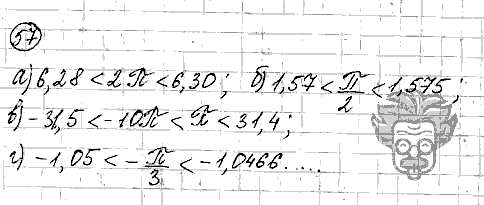 57
а) 6,28 < 2π < 6,30; б) 1,57 < π/2 < 1,575;
в) -31,5 < -10π < π < 31,4;
г) -1,05 < -π/3 < -1,0466.....